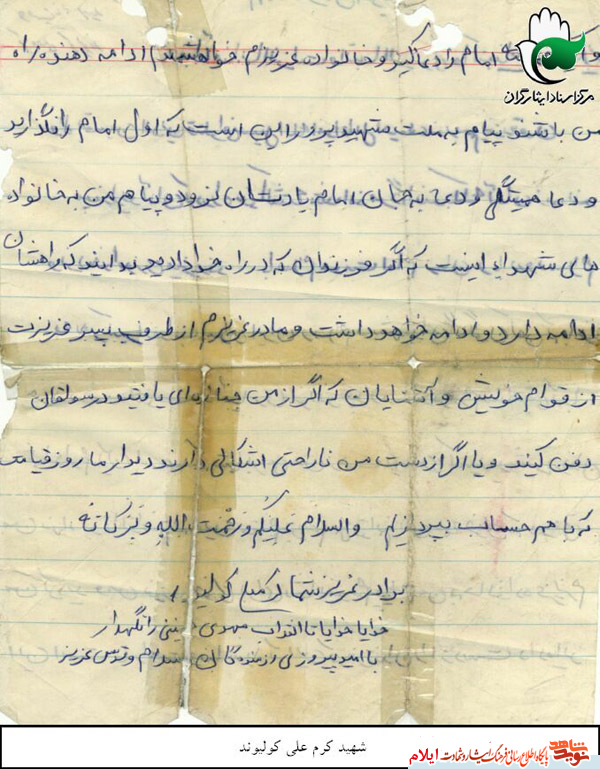 امام را دعا کنید و خانواده عزیزم خواهشمندم ادامه دهنده راه
مرکز اسناد ایثارگران
من باشند و پیام به ملت شهید پرور این است که اول امام را نگذارید
و دعا همیشگی و دعا به جان امام یادتان نرود و پیام من به خانواده
های شهداء اینست که اگر فرزندان که در راه خدا دادید بدانید که راهشان
ادامه دارد و ادامه خواهد داشت و مادر عزیزم از طرف پسر عزیزت
از قوام خویش و آشنایان که اگر از من جنازه ای یافتید در سولقان
دفن کنید و یا اگر از دست من ناراحتی اشکالی دارند دیدار ما روز قیامت
که با هم حساب بپردازیم والسلام علیکم و رحمت الله و برکاته
برادر عزیز شما کرمعلی
خدایا خدایا تا انقلاب مهدی خمینی را نگهدار
با امید پیروزی رزمندگان
شهید کرم علی کولیوند
نوید شاهد
پایگاه اطلاع رسانی فرهنگ ایثار و شهادت ایلام